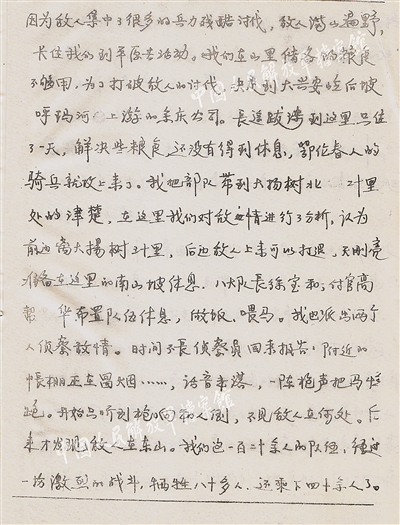 因为敌人集中了很多的兵力残酷讨伐，敌人满山遍野，
卡住我们到平原去活动。我们在山里储备的粮食
不够用，为了打破敌人的讨伐，决定到大兴安岭后坡
呼玛河上游的余庆公司。长途跋涉到这里只住
了一天，解决些粮食，还没有得到休息，鄂伦春人的
骑兵就攻上来了。我把部队带到大杨树北二十里
处的津楚，在这里我们对敌情进行了分析，认为
前边离大杨树二十里，后边敌人上来可以打退，天刚亮
准备在这里的南山坡休息。八大队长徐宝和，付官高
帮华布置队伍休息，做饭、喂马。我也派出两个
人侦察敌情。时间不长侦察员回来报告：附近的
帐棚正在冒烟……，话音未落，一阵枪声把马惊
跑。开始只听到枪响和人倒，不见敌人在何处。后
来才发现敌人在东山。我们这一百二十余人的队伍，经过
一场激烈的战斗，牺牲八十多人，还剩下四十余人了。
中国人民解放军档案馆
中国人民解放军档案馆